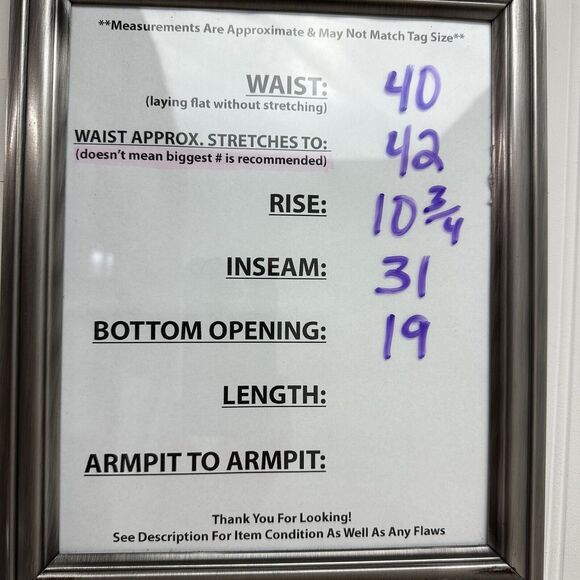 **Measurements Are Approximate & May Not Match Tag Size**
WAIST: 40
(laying flat without stretching)
WAIST APPROX. STRETCHES TO: 42
(doesn't mean biggest # is recommended)
RISE: 10 3/4
INSEAM: 31
BOTTOM OPENING: 19
LENGTH:
ARMPIT TO ARMPIT:
Thank You For Looking!
See Description For Item Condition As Well As Any Flaws